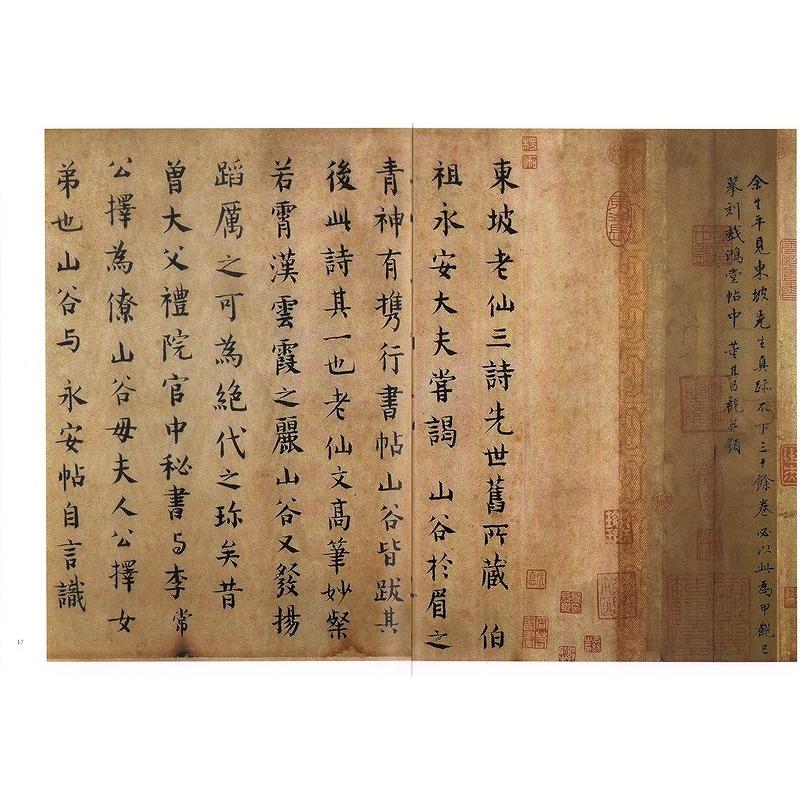 余生平見東坡先生真跡不下三十餘卷必以此為甲觀已
摹刻戲鴻堂帖中 董其昌觀并題
東坡老仙三詩先世舊所藏 伯
祖永安大夫嘗謁 山谷於眉之
青神有攜行書帖山谷皆跋其
後此詩其一也老仙文高筆妙粲
若霄漢雲霞之麗山谷又發揚
蹈厲之可為絕代之珎矣昔
曽大父禮院官中秘書与李常
公擇為僚山谷母夫人公擇女
弟也山谷与 永安帖自言識
17